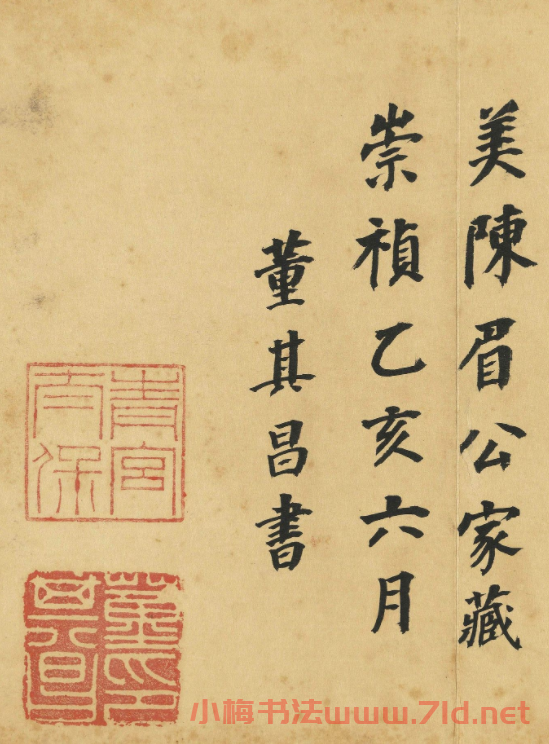 美陳眉公家藏
崇禎乙亥六月
董其昌書
青宮太保
董氏昌其
小梅书法www.7ld.net